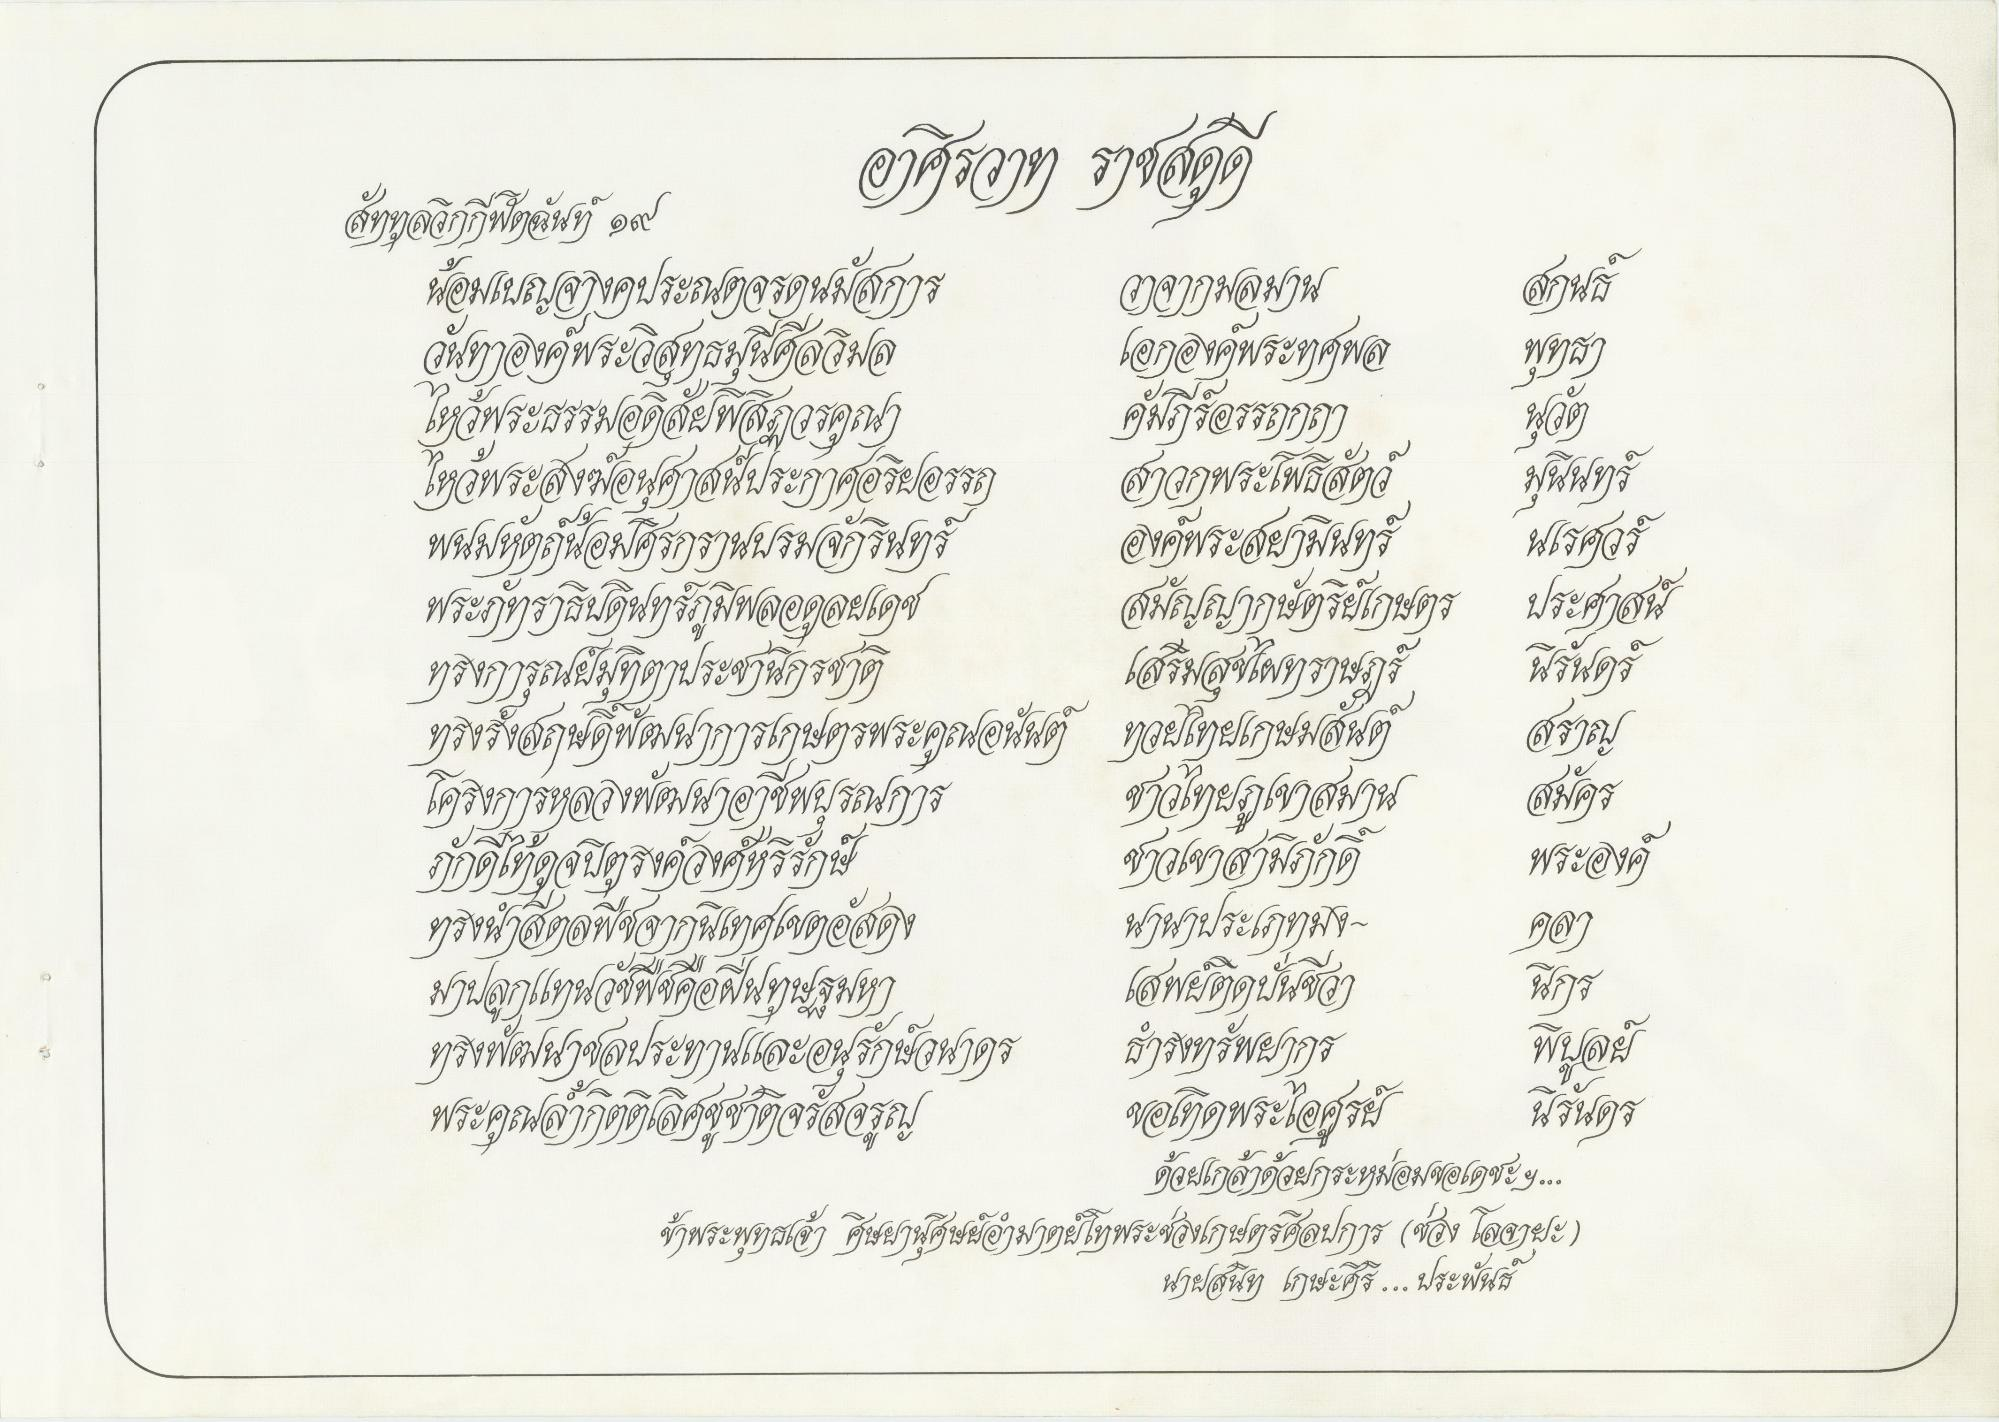 อาศิรวาท ราชสดุดี
สัททุลวิกกีฬิตฉันท์ ๑๙
น้อมเบญจางคประณตจรดนมัสการ วาจากมลมาน สกนธ์
วันทาองค์พระวิสุทธมุนีศีลวิมล เอกองค์พระทศพล พุทธา
ไหว้พระธรรมอดิสัยพิสิฏฐวรคุณา คัมภีร์อรรถกถา นุวัต
ไหว้พระสงฆ์อนุศาสน์ประกาศอริยอรรถ สาวกพระโพธิสัตว์ มุนินทร์
พนมหัตถ์น้อมศิรกรานบรมจักรินทร์ องค์พระสยามินทร์ นเรศวร์
พระภัทราธิบดินทร์ภูมิพลอดุลยเดช สมัญญากษัตริย์เกษตร ประศาสน์
ทรงการุณย์มุทิตาประชานิกรชาติ เสริมสุขไผทราษฎร์ นิรันดร์
ทรงรังสฤษดิ์พัฒนาการเกษตรพระคุณอนันต์ ทวยไทยเกษมสันต์ สราญ
โครงการหลวงพัฒนาอาชีพบุรณการ ชาวไทยภูเขาสมาน สมัคร
ภักดีไท้ดุจปิตุรงค์วงศ์หิริรักษ์ ชาวเขาสามิภักดิ์ พระองค์
ทรงนำสีตลพืชจากนิเทศเขตอัสดง นานาประเภทมัง~ คลา
มาปลูกแทนวัชพืชคือฝิ่นทุษฐมหา เสพย์ติดบั่นชีวา นิกร
ทรงพัฒนาชลประทานและอนุรักษ์วนาดร ธำรงทรัพยากร พิบูลย์
พระคุณล้ำกิตติเลิศชูชาติจรัสจรูญ ขอเทิดพระไอศูรย์ นิรันดร
ด้วยเกล้าด้วยกระหม่อมขอเดชะ ฯ...
ข้าพระพุทธเจ้า ศิษยานุศิษย์อำมาตย์โทพระช่วงเกษตรศิลปการ (ช่วง โลจายะ)
นายสนิท เกษะศิริ ... ประพันธ์